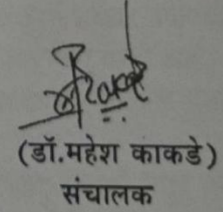 (डॉ.महेश काकडे)
संचालक